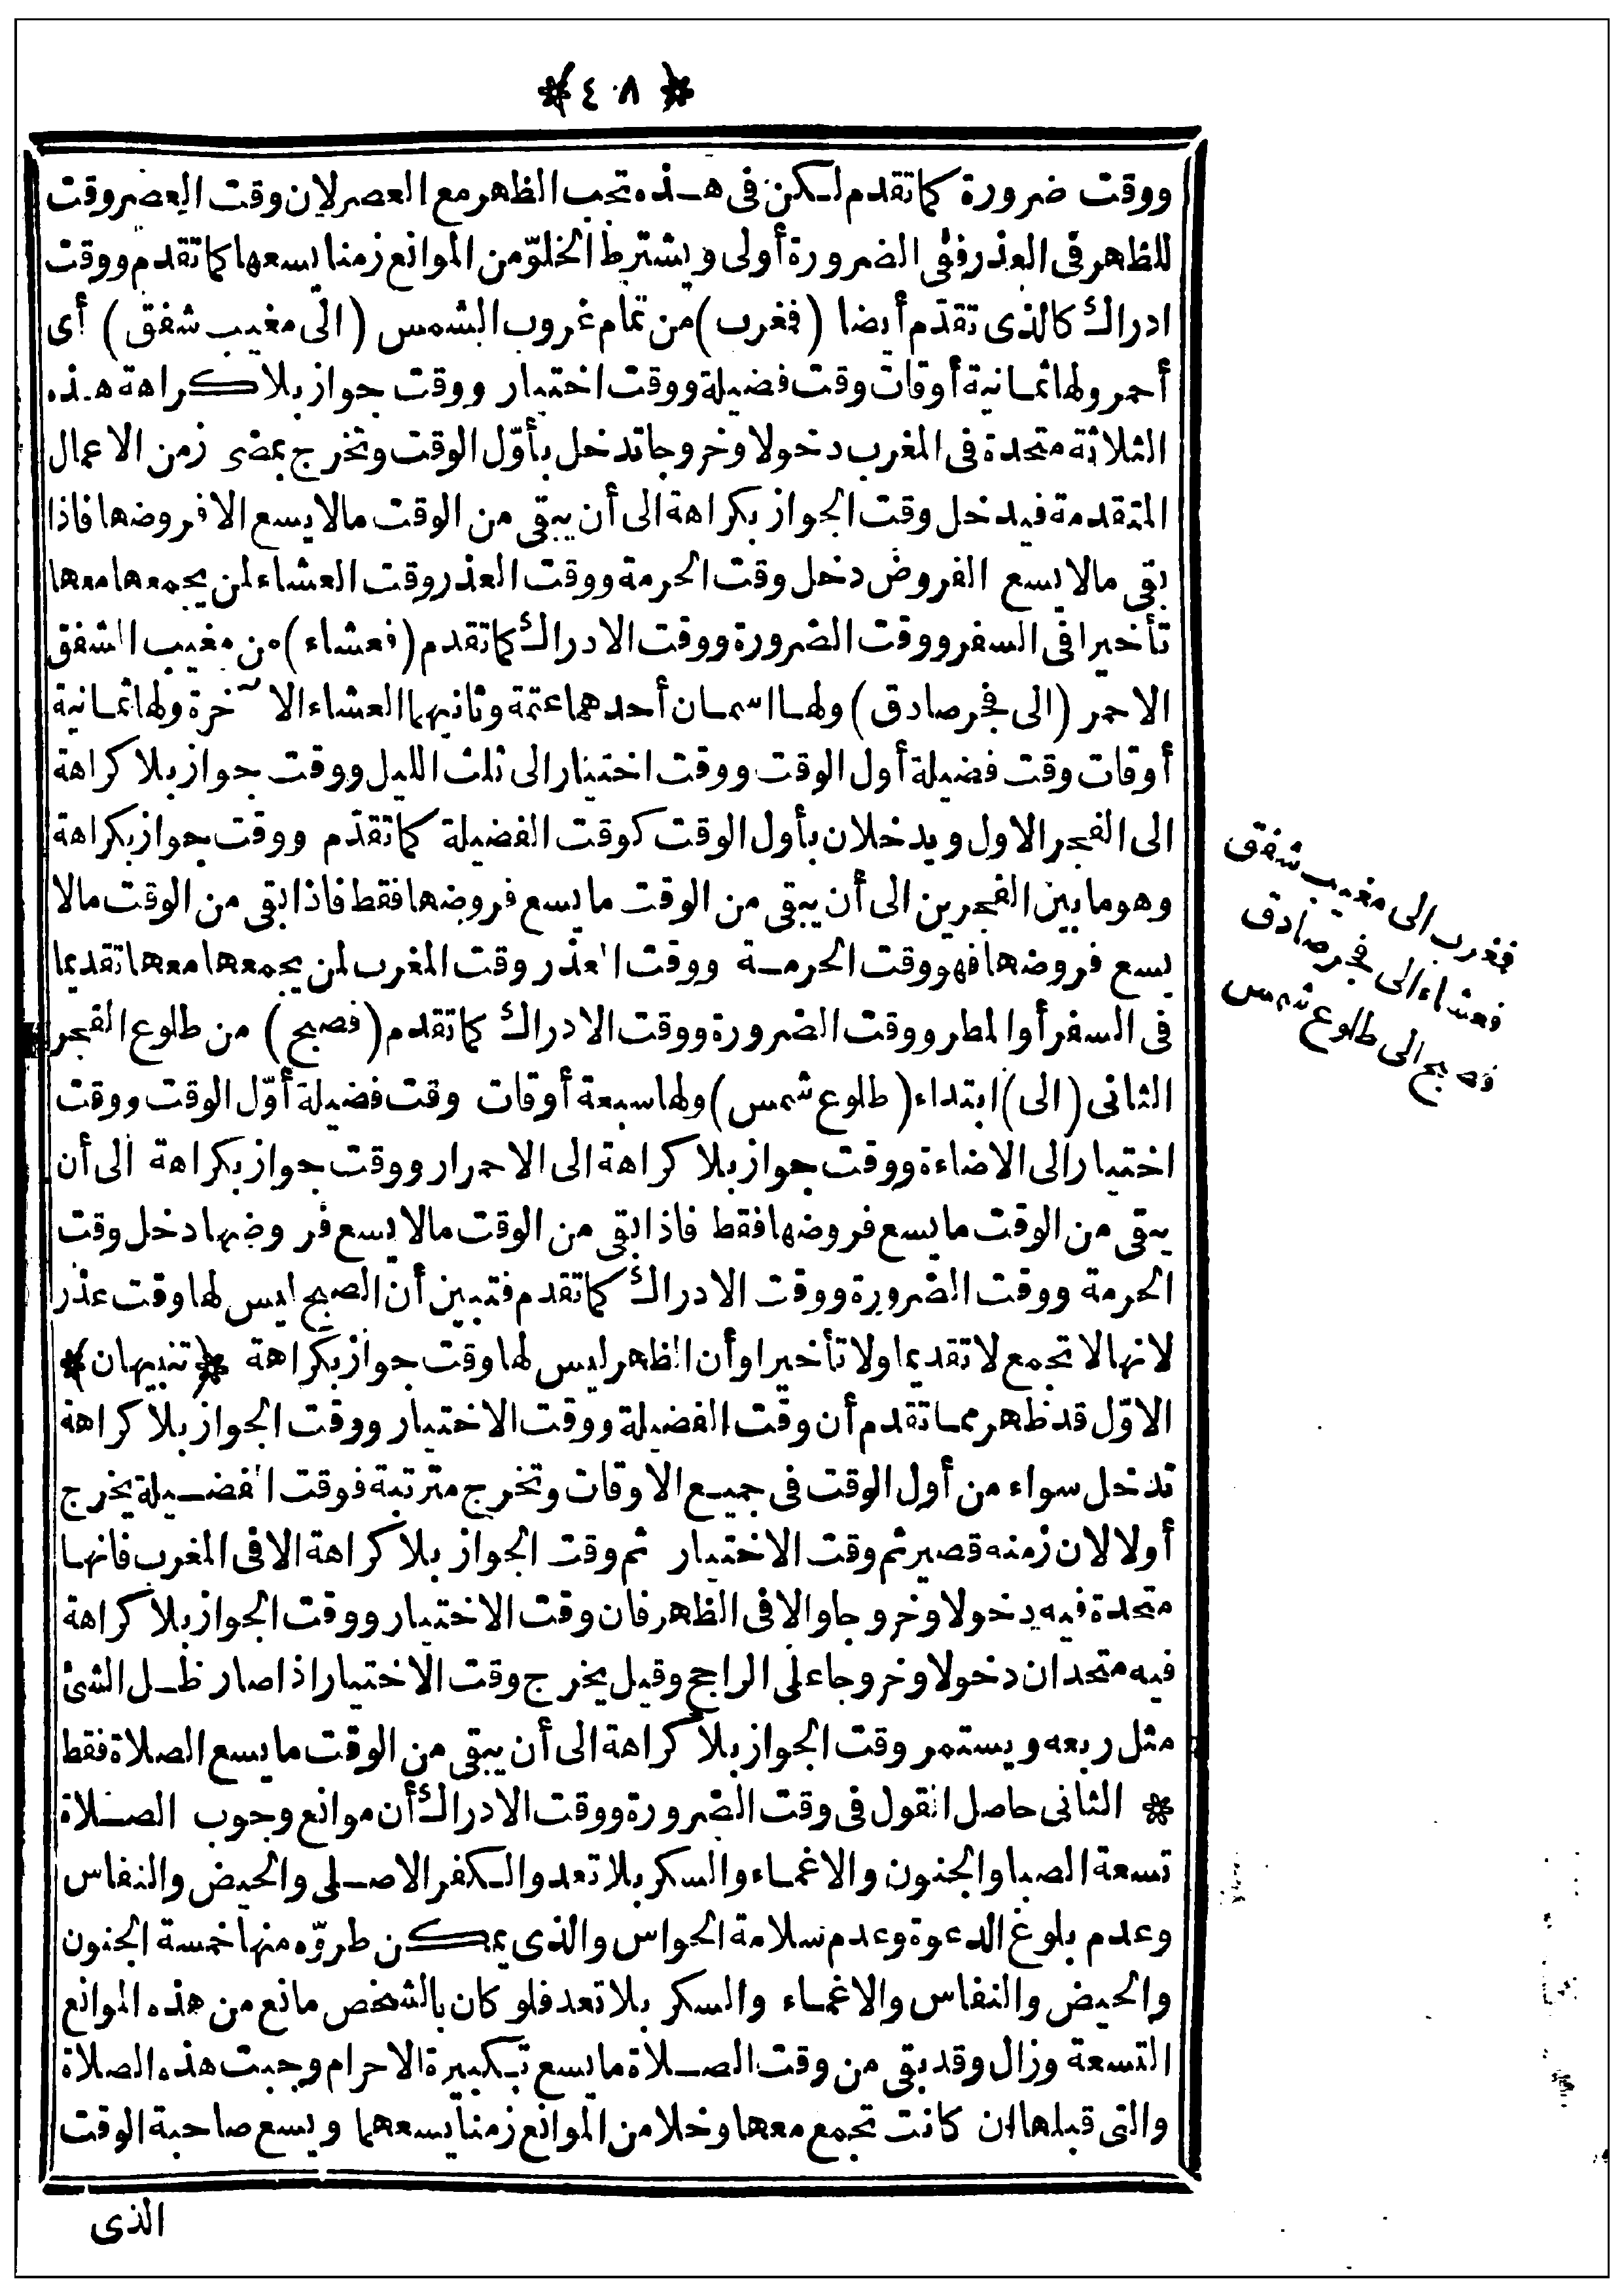 ﴿٤٠٨﴾
ووقت ضرورة كما تقدم لكن فى هذه تجب الظهر مع العصر لان وقت العصر وقت
للظهر فى العذر ففى الضرورة أولى ويشترط الخلوّ من الموانع زمنا يسعها كما تقدم ووقت
ادراك كالذى تقدّم أيضا (فغرب) من تمام غروب الشمس (الى مغيب شفق) أى
أحمر ولها ثمانية أوقات وقت فضيلة ووقت اختيار ووقت جواز بلا كراهة هذه
الثلاثة متحدة فى المغرب دخولا وخروجا تدخل بأوّل الوقت وتخرج بمضى زمن الاعمال
المتقدمة فيدخل وقت الجواز بكراهة الى أن يبقى من الوقت مالا يسع الا فروضها فاذا
بقى مالا يسع الفروض دخل وقت الحرمة ووقت العذر وقت العشاء لمن يجمعها معها
تأخيرا فى السفر ووقت الضرورة ووقت الادراك كما تقدم (فعشاء) من مغيب الشفق
الاحمر (الى فجر صادق) ولها اسمان أحدهما عتمة وثانيهما العشاء الآخرة ولها ثمانية
أوقات وقت فضيلة أول الوقت ووقت اختيار الى ثلث الليل ووقت جواز بلا كراهة
الى الفجر الاول ويدخلان بأول الوقت كوقت الفضيلة كما تقدّم ووقت جواز بكراهة
وهو ما بين الفجرين الى أن يبقى من الوقت ما يسع فروضها فقط فاذا بقى من الوقت مالا
يسع فروضها فهو وقت الحرمة ووقت العذر وقت المغرب لمن يجمعها معها تقديما
فى السفر أو المطر ووقت الضرورة ووقت الادراك كما تقدم (فصبح) من طلوع الفجر
الثانى (الى) ابتداء (طلوع شمس) ولها سبعة أوقات وقت فضيلة أوّل الوقت ووقت
اختيار الى الاضاءة ووقت جواز بلا كراهة الى الاحمرار ووقت جواز بكراهة الى أن
يبقى من الوقت ما يسع فروضها فقط فاذا بقى من الوقت مالا يسع فروضها دخل وقت
الحرمة ووقت الضرورة ووقت الادراك كما تقدم فتبين أن الصبح ليس لها وقت عذر
لانها لا تجمع لا تقديما ولا تأخيرا وأن الظهر ليس لها وقت جواز بكراهة ﴿تنبيهان﴾
الاوّل قد ظهر مما تقدم أن وقت الفضيلة ووقت الاختيار ووقت الجواز بلا كراهة
تدخل سواء من أول الوقت فى جميع الاوقات وتخرج مترتبة فوقت الفضيلة يخرج
أولا لان زمنه قصير ثم وقت الاختيار ثم وقت الجواز بلا كراهة الا فى المغرب فانها
متحدة فيه دخولا وخروجا والا فى الظهر فان وقت الاختيار ووقت الجواز بلا كراهة
فيه متحدان دخولا وخروجا على الراجح وقيل يخرج وقت الاختيار اذا صار ظل الشئ
مثل ربعه ويستمر وقت الجواز بلا كراهة الى أن يبقى من الوقت ما يسع الصلاة فقط
* الثانى حاصل القول فى وقت الضرورة ووقت الادراك أن موانع وجوب الصلاة
تسعة الصبا والجنون والاغماء والسكر بلا تعد والكفر الاصلى والحيض والنفاس
وعدم بلوغ الدعوة وعدم سلامة الحواس والذى يمكن طروّه منها خمسة الجنون
والحيض والنفاس والاغماء والسكر بلا تعد فلو كان بالشخص مانع من هذه الموانع
التسعة وزال وقد بقى من وقت الصلاة ما يسع تكبيرة الاحرام وجبت هذه الصلاة
والتى قبلها ان كانت تجمع معها وخلا من الموانع زمنا يسعهما ويسع صاحبة الوقت
الذى
فغرب الى مغيب شفق
فعشاء الى فجر صادق
فصبح الى طلوع شمس